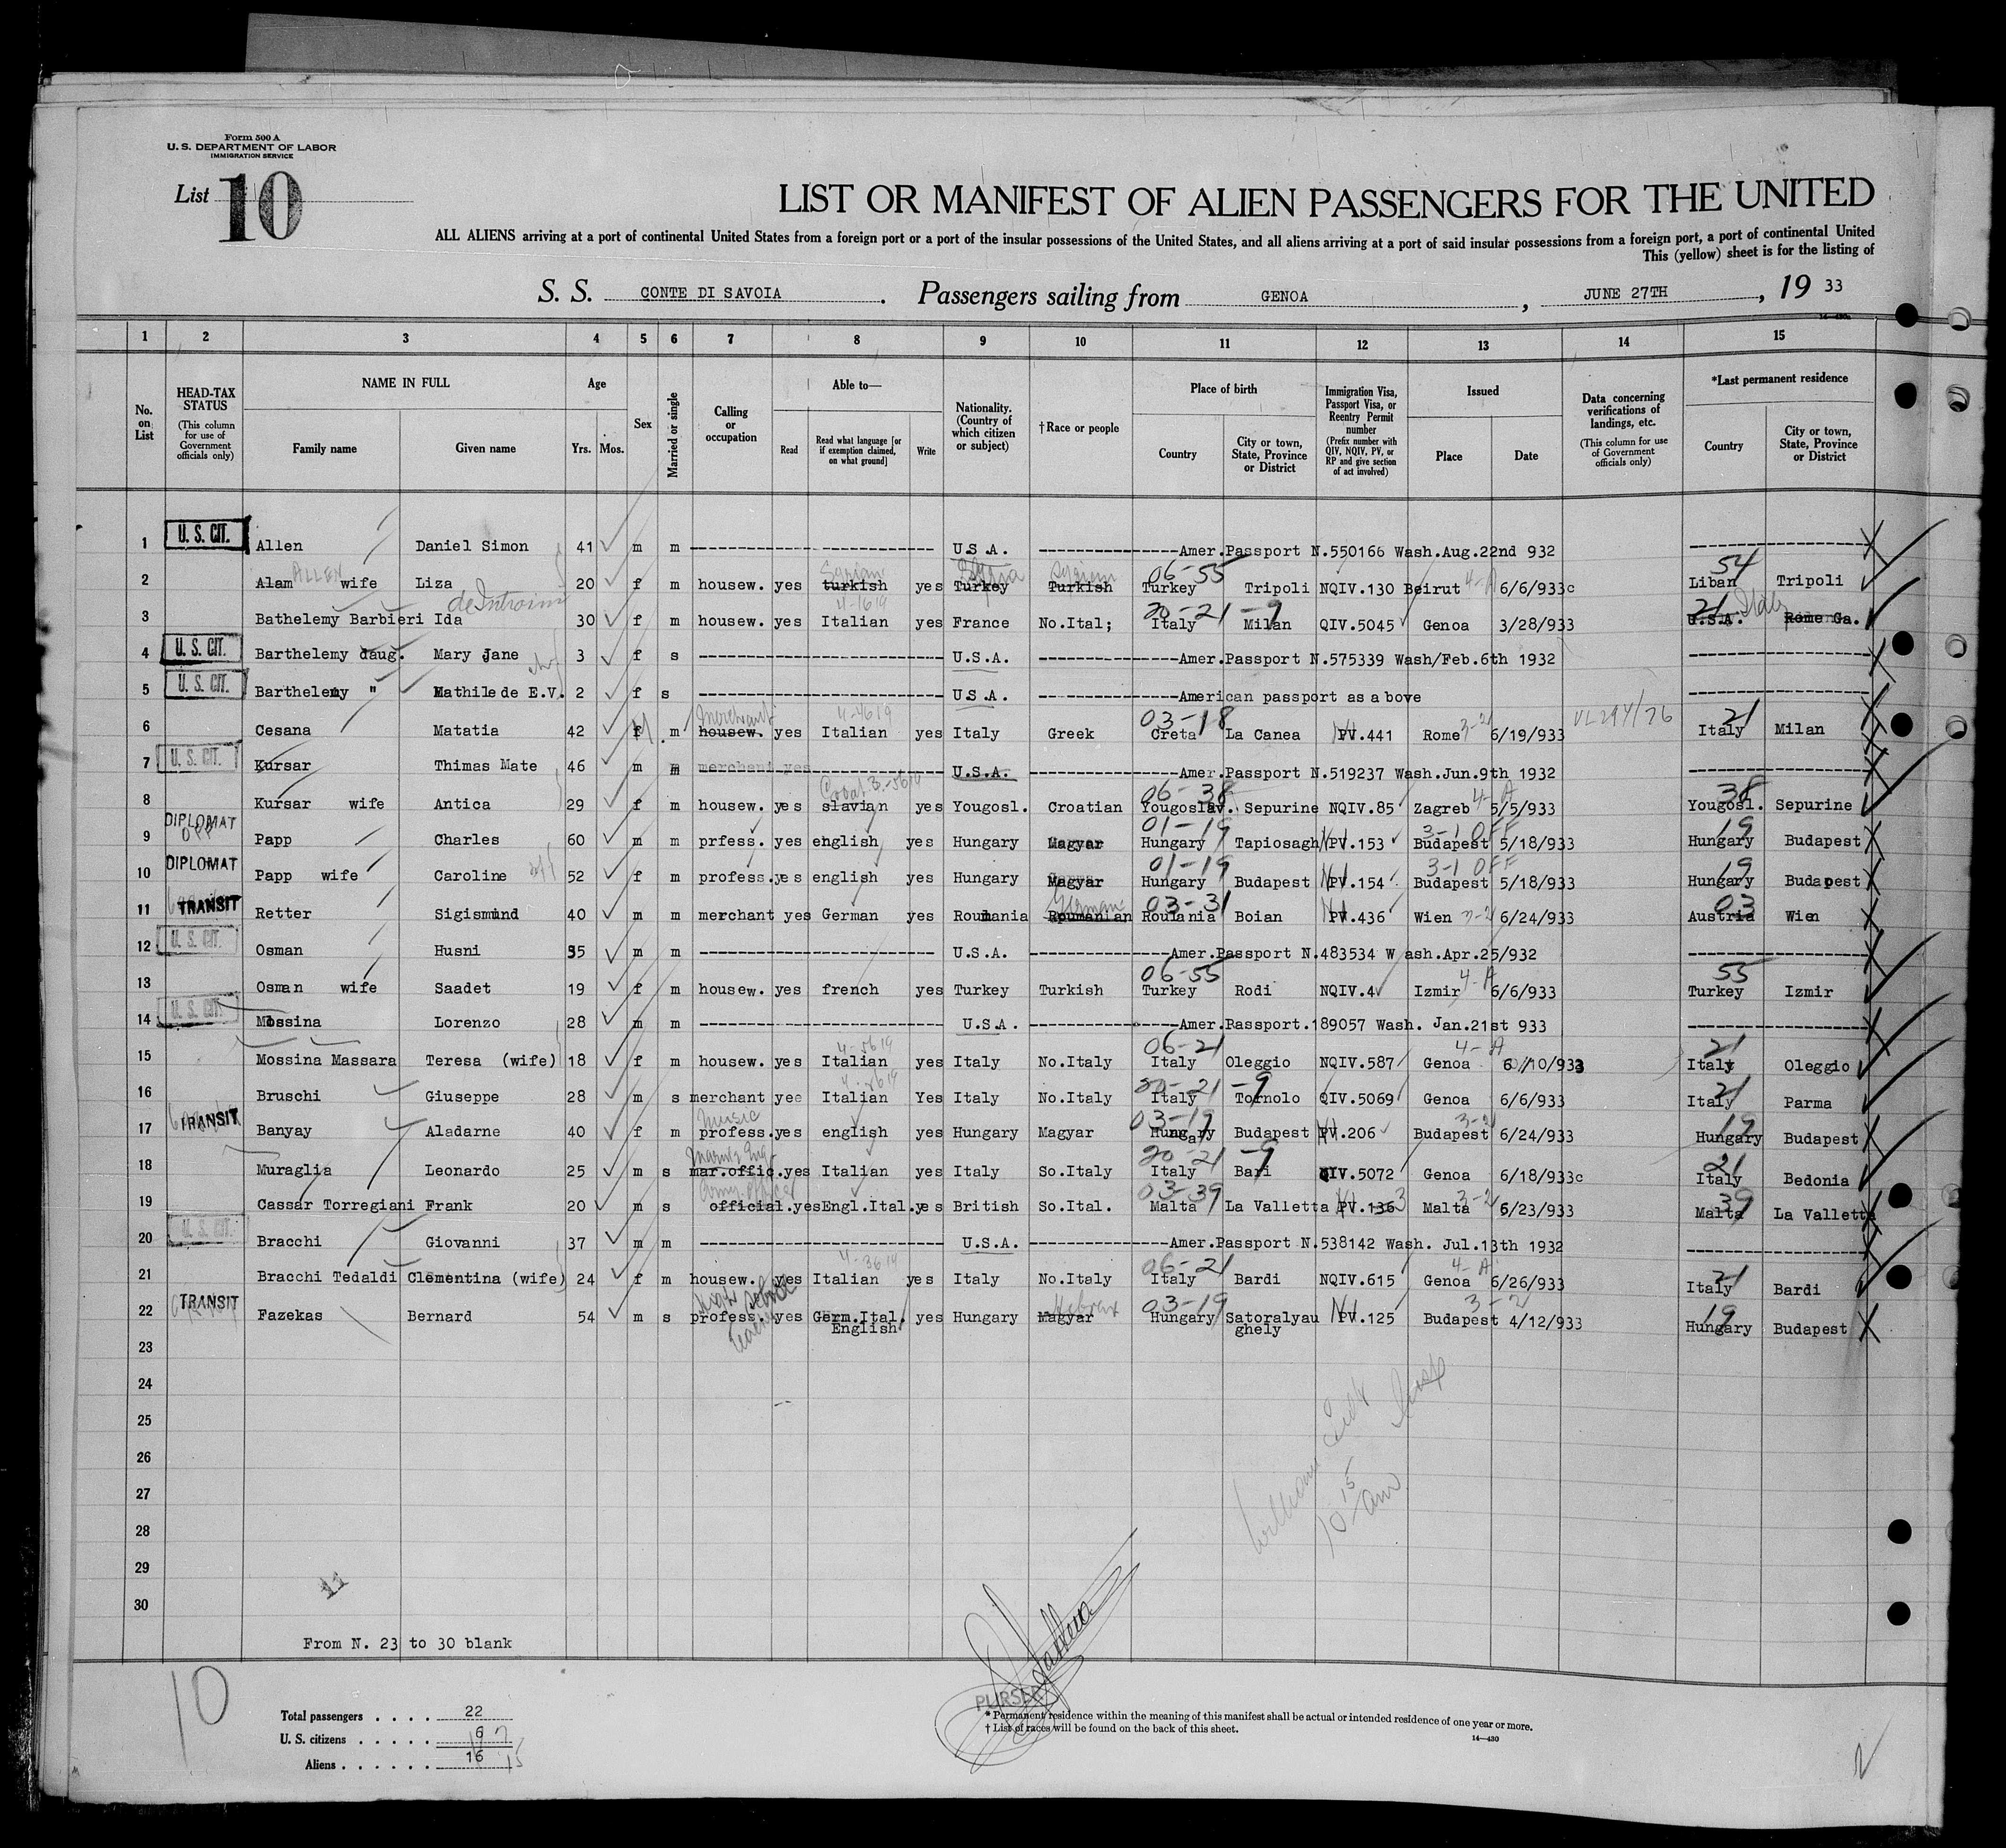 Form 500 A
U. S. DEPARTMENT OF LABOR
IMMIGRATION SERVICE
List 10
LIST OR MANIFEST OF ALIEN PASSENGERS FOR THE UNITED
ALL ALIENS arriving at a port of continental United States from a foreign port or a port of the insular possessions of the United States, and all aliens arriving at a port of said insular possessions from a foreign port, a port of continental United
This (yellow) sheet is for the listing of
S. S. CONTE DI SAVOIA . Passengers sailing from GENOA , JUNE 27TH , 19 33
14—430a
1 2 3 4 5 6 7 8 9 10 11 12 13 14 15
No. on List
HEAD-TAX STATUS (This column for use of Government officials only)
NAME IN FULL
Family name Given name
Age
Yrs. Mos.
Sex
Married or single
Calling or occupation
Able to—
Read Read what language [or if exemption claimed, on what ground] Write
Nationality. (Country of which citizen or subject)
†Race or people
Place of birth
Country City or town, State, Province or District
Immigration Visa, Passport Visa, or Reentry Permit number (Prefix number with QIV, NQIV, PV, or RP and give section of act involved)
Issued
Place Date
Data concerning verifications of landings, etc. (This column for use of Government officials only)
*Last permanent residence
Country City or town, State, Province or District
1 U. S. CIT. Allen Daniel Simon 41 m m U.S.A. Amer.Passport N.550166 Wash.Aug.22nd 932
2 Alam ALLEN wife Liza 20 f m housew. yes turkish yes Turkey Turkish 06-55 Turkey Tripoli NQIV.130 Beirut 4-A 6/6/933c 54 Liban Tripoli
3 Bathelemy Barbieri Ida 30 f m housew. yes Italian yes France No.Ital; 20-21-9 Italy Milan QIV.5045 Genoa 3/28/933 21 Italy U.S.A. Rome Ga.
4 U. S. CIT. Barthelemy daug. Mary Jane 3 f s U.S.A. Amer.Passport N.575339 Wash/Feb.6th 1932
5 U. S. CIT. Barthelemy " Mathilede E.V. 2 f s U.S.A. American passport as above
6 Cesana Matatia 42 f M m merchant housew. yes Italian yes Italy Greek 03-18 Creta La Canea PV.441 Rome 3-2 6/19/933 VL294/76 21 Italy Milan
7 U. S. CIT. Kursar Thimas Mate 46 m m merchant yes U.S.A. Amer.Passport N.519237 Wash.Jun.9th 1932
8 Kursar wife Antica 29 f m housew. yes slavian yes Yougosl. Croatian 06-38 Yougoslav. Sepurine NQIV.85 Zagreb 4-A 5/5/933 38 Yougosl. Sepurine
9 DIPLOMAT Papp Charles 60 m m prfess. yes english yes Hungary Magyar 01-19 Hungary Tapiosagh PV.153 3-1 OFF Budapest 5/18/933 19 Hungary Budapest
10 DIPLOMAT Papp wife Caroline 52 f m profess.yes english yes Hungary Magyar 01-19 Hungary Budapest PV.154 3-1 OFF Budapest 5/18/933 19 Hungary Budapest
11 TRANSIT Retter Sigismund 40 m m merchant yes German yes Roumania German Roumanian 03-31 Roulania Boian PV.436 Wien 3-2 6/24/933 03 Austria Wien
12 U. S. CIT. Osman Husni 35 m m U.S.A. Amer.Passport N.483534 Wash.Apr.25/932
13 Osman wife Saadet 19 f m housew. yes french yes Turkey Turkish 06-55 Turkey Rodi NQIV.4 Izmir 4-A 6/6/933 55 Turkey Izmir
14 U. S. CIT. Mossina Lorenzo 28 m m U.S.A. Amer.Rassport.189057 Wash. Jan.21st 933
15 Mossina Massara Teresa (wife) 18 f m housew. yes Italian yes Italy No.Italy 06-21 Italy Oleggio NQIV.587 Genoa 4-A 6/10/933 21 Italy Oleggio
16 Bruschi Giuseppe 28 m s merchant yee Italian Yes Italy No.Italy 20-21-9 Italy Tornolo QIV.5069 Genoa 6/6/933 21 Italy Parma
17 TRANSIT Banyay Aladarne 40 f m music profess.yes english yes Hungary Magyar 03-19 Hungary Budapest PV.206 Budapest 3-2 6/24/933 19 Hungary Budapest
18 Muraglia Leonardo 25 m s mar.offic.yes Italian yes Italy So.Italy 20-21-9 Italy Bari QIV.5072 Genoa 6/18/933c 21 Italy Bedonia
19 Cassar Torregiani Frank 20 m s Army officer official.yesEngl.Ital.yes British So.Ital. 03-39 Malta La Valletta PV.136 Malta 3-2 6/23/933 39 Malta La Valletta
20 U. S. CIT. Bracchi Giovanni 37 m m U.S.A. Amer.Passport N.538142 Wash. Jul.13th 1932
21 Bracchi Tedaldi Clementina (wife) 24 f m housew. yes Italian yes Italy No.Italy 06-21 Italy Bardi NQIV.615 Genoa 4-A 6/26/933 21 Italy Bardi
22 TRANSIT Fazekas Bernard 54 m s High School teacher profess. yes Germ.Ital. English yes Hungary Hebrew Magyar 03-19 Hungary Satoralyau ghely PV.125 Budapest 3-2 4/12/933 19 Hungary Budapest
23
24
25
26
27
28
29
30
11
From N. 23 to 30 blank
10
Total passengers . . . . 22
U. S. citizens . . . . . 6 7
Aliens . . . . . . 16 15
PURSER
* Permanent residence within the meaning of this manifest shall be actual or intended residence of one year or more.
† List of races will be found on the back of this sheet.
14—430